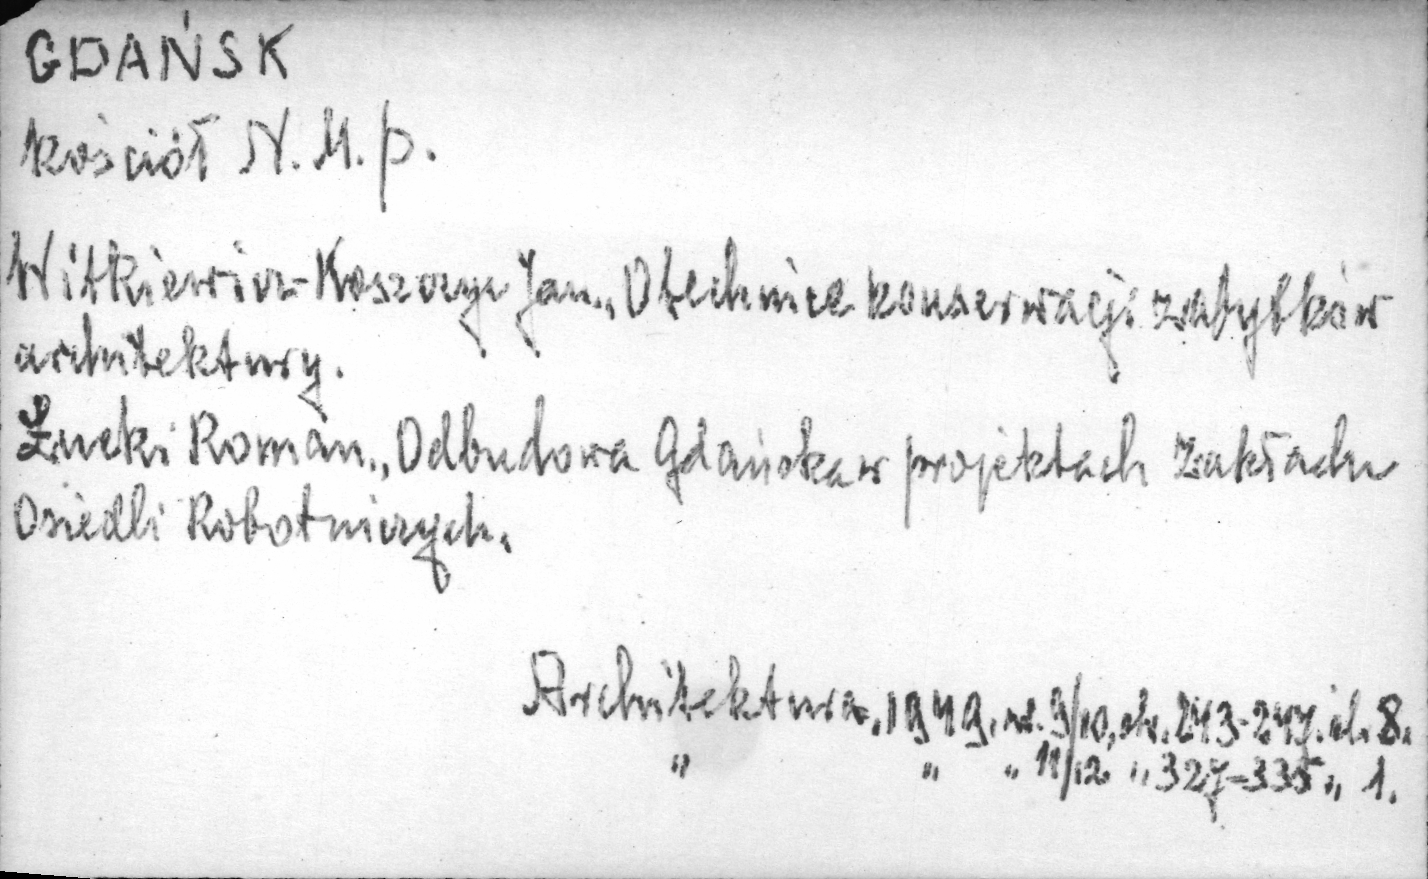 GDAŃSK
Kościół N. M. P.
Witkiewicz-Koszczyc Jan„ O technice konserwacji zabytków
architektury.
Łucki Roman„ Odbudowa Gdańska w projektach Zakładu
Osiedli Robotniczych.
Architektura, 1949, nr. 9/10, str. 243-247. il. 8.
" " " 11/12 " 327-335 „ 1.